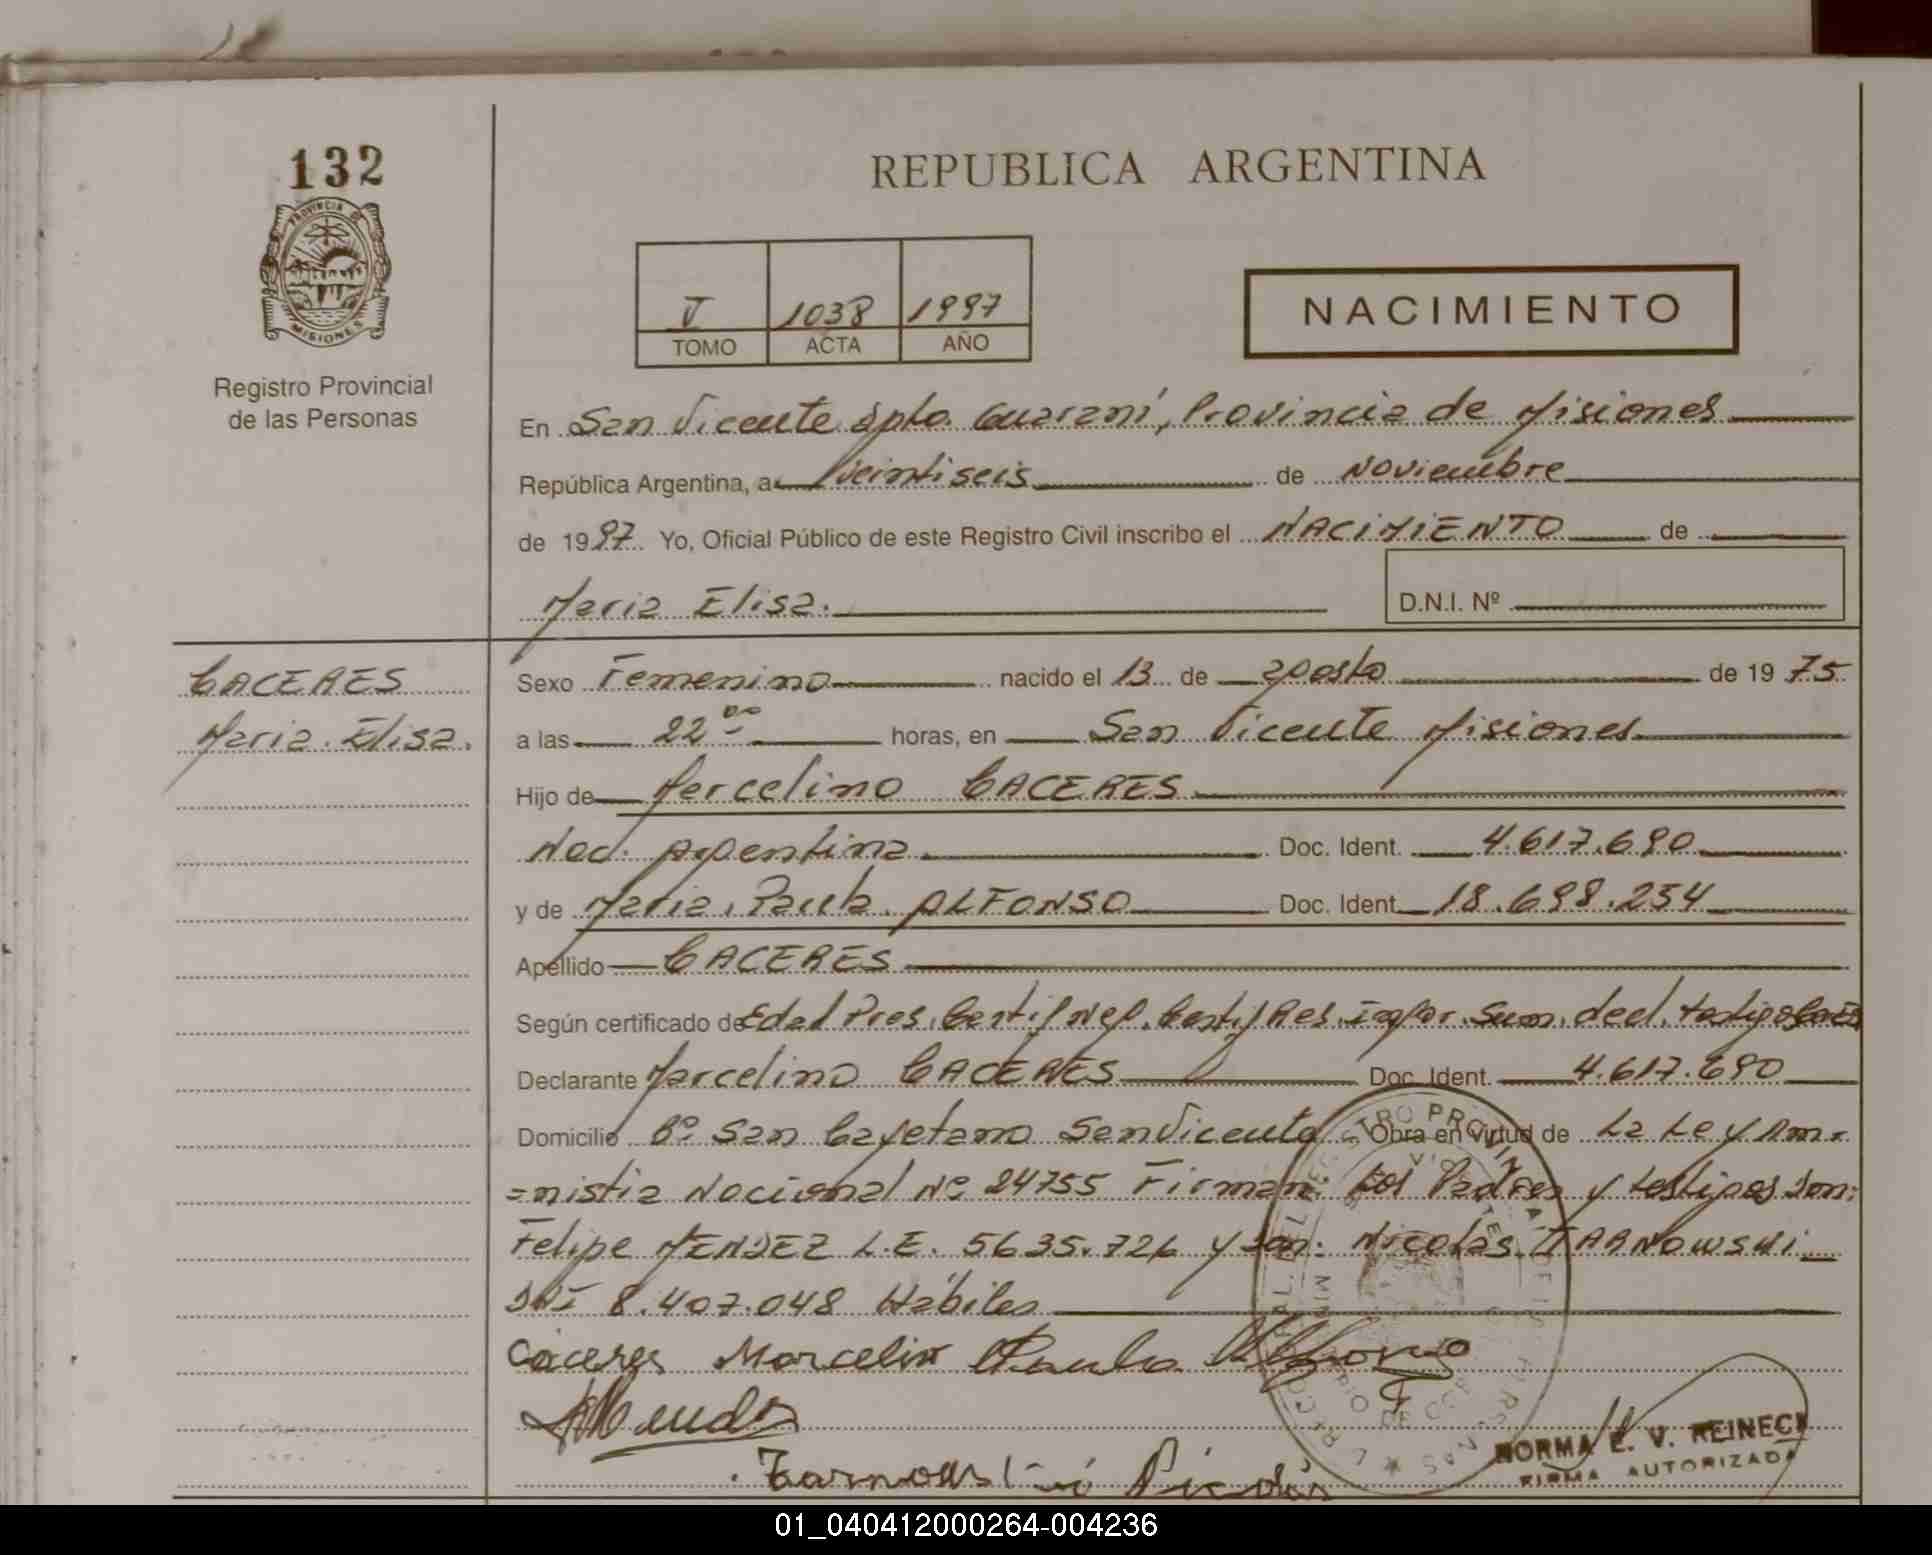 132
PROVINCIA DE
MISIONES
Registro Provincial
de las Personas
REPUBLICA ARGENTINA
V 1038 1997
TOMO ACTA AÑO
NACIMIENTO
En San Vicente Dpto. Guaraní, Provincia de Misiones
República Argentina, a veintiseis de Noviembre
de 1997 Yo, Oficial Público de este Registro Civil inscribo el NACIMIENTO de
Maria Elisa.
D.N.I. Nº
CACERES
Maria Elisa.
Sexo Femenino nacido el 13 de agosto de 1975
a las 22 00 horas, en San Vicente Misiones
Hijo de Marcelino CACERES
Nac. Argentina Doc. Ident. 4.617.690
y de Maria Paula ALFONSO Doc. Ident. 18.698.254
Apellido CACERES
Según certificado de Edad Pres. Certif Neg. Certif Res. Infor. Sum. decl. testigos
Declarante Marcelino CACERES Doc. Ident. 4.617.690
Domicilio Bº San Cayetano San Vicente Obra en virtud de La Ley Am=
=nistia Nacional Nº 24755 Firman los Padres y testigos Don:
Felipe MENDEZ L.E. 5635.726 y Don: Nicolás TARNOWSKI
DNI 8.407.048 Hábiles
Caceres Marcelino Paula Alfonzo
Mendez
Tarnowski Nicolás
NORMA E. V. REINECK
FIRMA AUTORIZADA
01_040412000264-004236